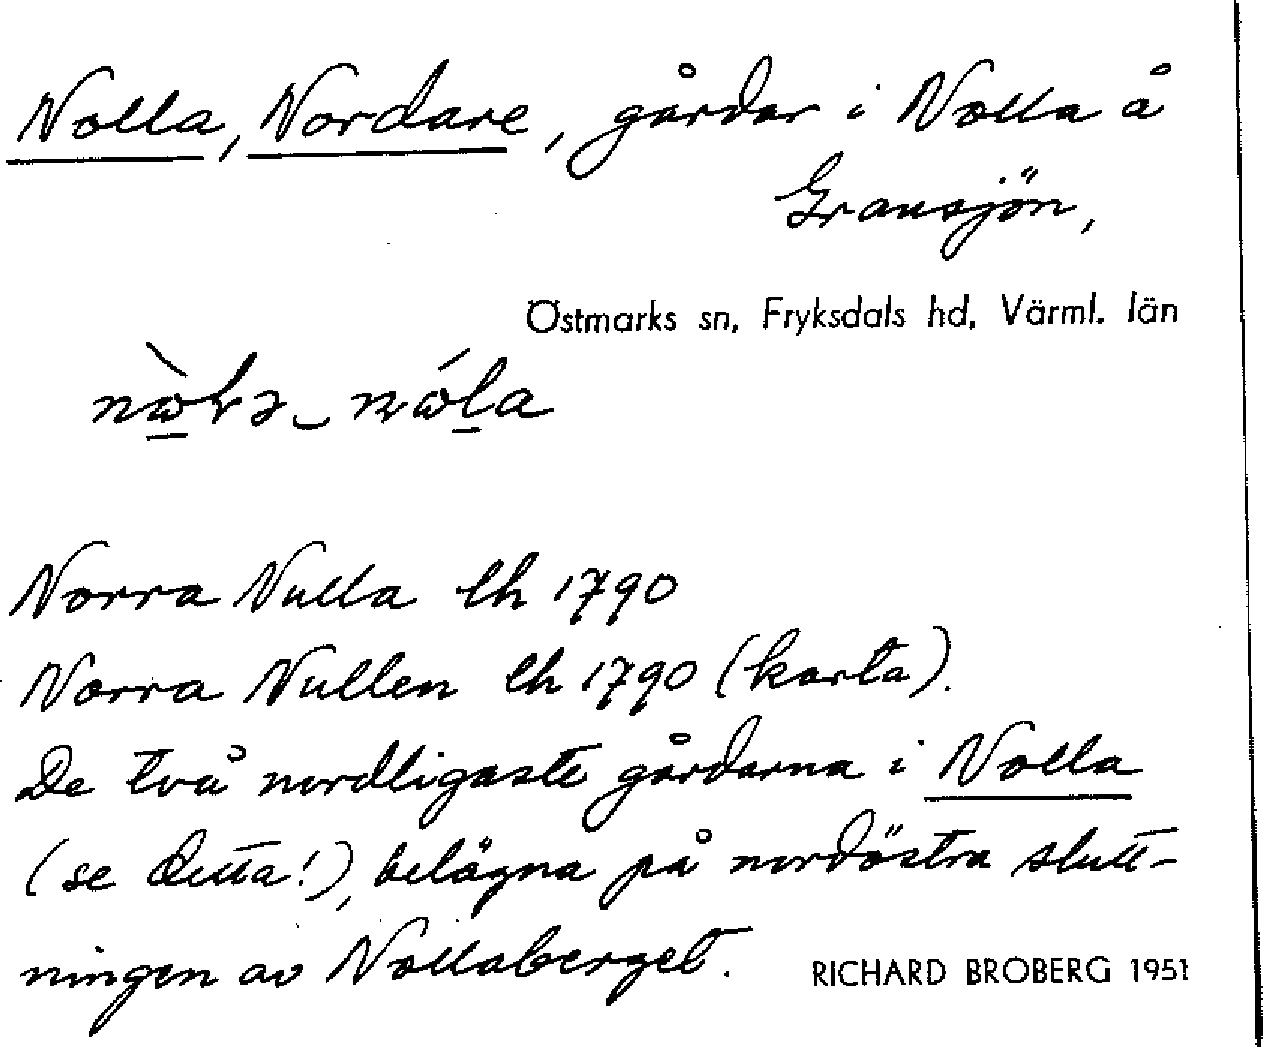 Nolla, Nordare, gårdar i Nolla å
Gransjön,
Östmarks sn, Fryksdals hd, Värml. län
Norra Nulla lh 1790
Norra Nullen lh 1790 (karta).
De två nordligaste gårdarna i Nolla
(se detta!), belägna på nordöstra slutt-
ningen av Nollaberget.
RICHARD BROBERG 1951